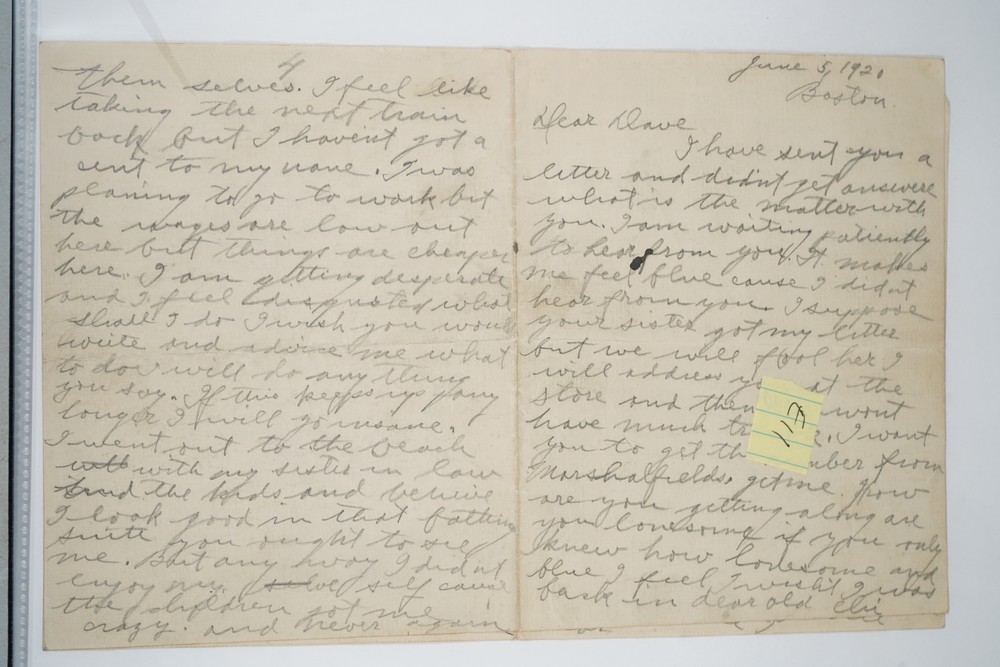 4
them selves. I feel like
taking the next train
back but I havent got a
cent to my name. I was
planing to go to work but
the wages are low out
here but things are cheaper
here. I am getting desperate
and I feel disgusted what
shall I do I wish you would
write and advice me what
to do will do any thing
you say. If this keeps up any
longer I will go insane.
I went out to the beach
with my sister in law
and the kids and believe
I look good in that bathing
suite you ought to see
me. But any way I didnt
enjoy my self cause
the children got me
crazy. and never again
June 5, 1921
Boston.
Dear Dave
I have sent you a
letter and didnt get answere
what is the matter with
you. I am waiting patiently
to hear from you. It makes
me feel blue cause I didnt
hear from you. I suppose
your sister got my letter
but we will fool her I
will address at the
store and then wont
have much. I want
you to get the from
Marshalfields. get me. How
are you getting along are
you lonesome if you only
knew how lonesome and
blue I feel I wish I was
back in dear old Chi
117